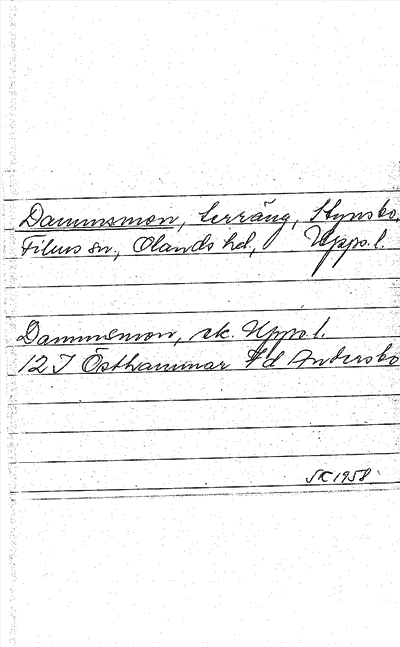 Dammsmon, terräng, Stynsbo,
Films sn, Olands hd, Upps. l.
Dammsmon, ek. Upps l.
12 I Östhammar 4d Andersbo
SK 1958